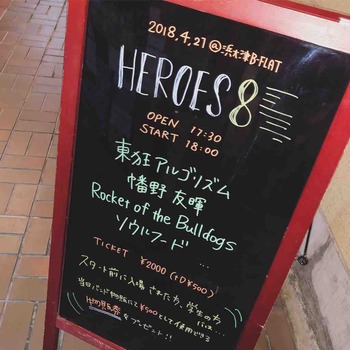 2018.4.21 @浜大津B-FLAT
HEROES 8
OPEN 17:30
START 18:00
東狂アルゴリズム
幡野 友暉
Rocket of the Bulldogs
ソウルフード ...
TICKET ¥2000 (+D¥500)
スタート前に入場された方、学生の方には...
当日バンド物販にて¥500として使用できる
物販券をプレゼント!!